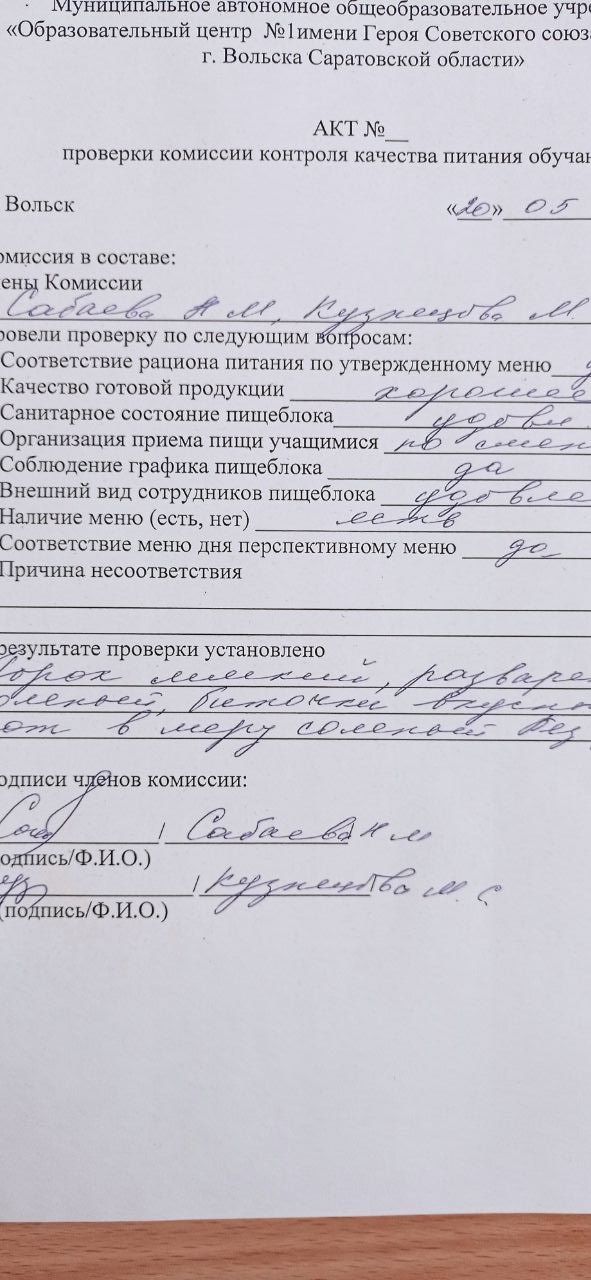 Муниципальное автономное общеобразовательное учре
«Образовательный центр №1имени Героя Советского союз
г. Вольска Саратовской области»
АКТ №__
проверки комиссии контроля качества питания обуча
Вольск «20» 05
омиссия в составе:
ены Комиссии
Сабаева Н М, Кузнецова М.
ровели проверку по следующим вопросам:
Соответствие рациона питания по утвержденному меню
Качество готовой продукции хорошее
Санитарное состояние пищеблока удовл
Организация приема пищи учащимися по смен
Соблюдение графика пищеблока да
Внешний вид сотрудников пищеблока удовле
Наличие меню (есть, нет) есть
Соответствие меню дня перспективному меню да
Причина несоответствия
результате проверки установлено
орох мягкий, разваре
оленый, биточки вкусн
от в меру соленый без
одписи членов комиссии:
/ Сабаева Н М
одпись/Ф.И.О.)
/ Кузнецова М. С
(подпись/Ф.И.О.)